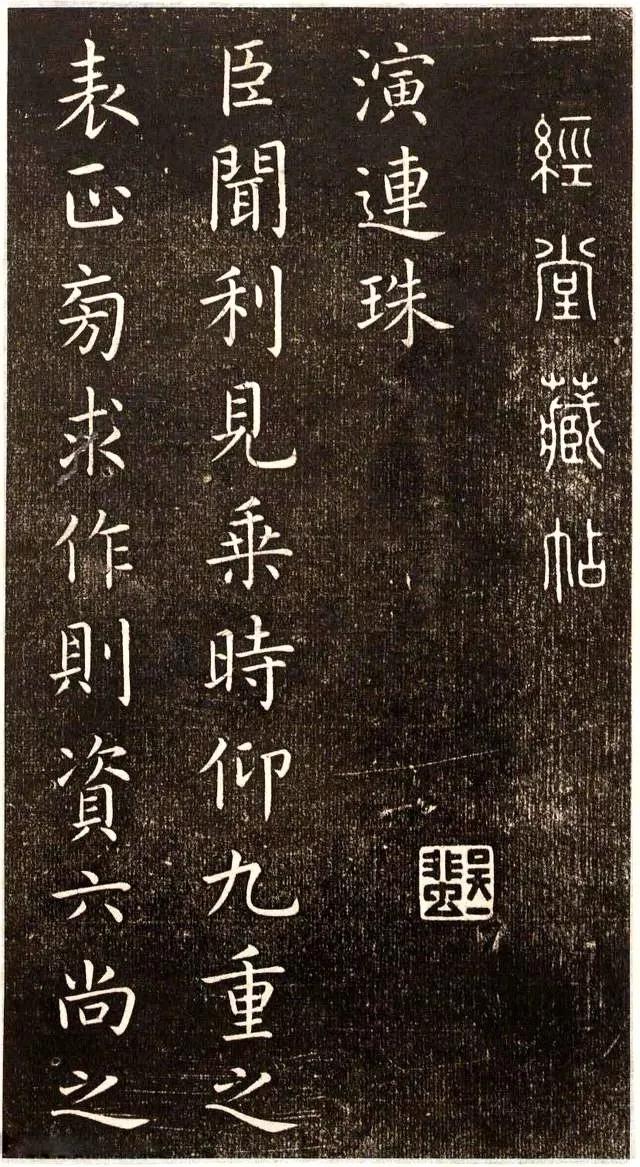 一經堂藏帖
演連珠
臣聞利見乗時仰九重之
表正㫄求作則資六尚之
吳一蜚